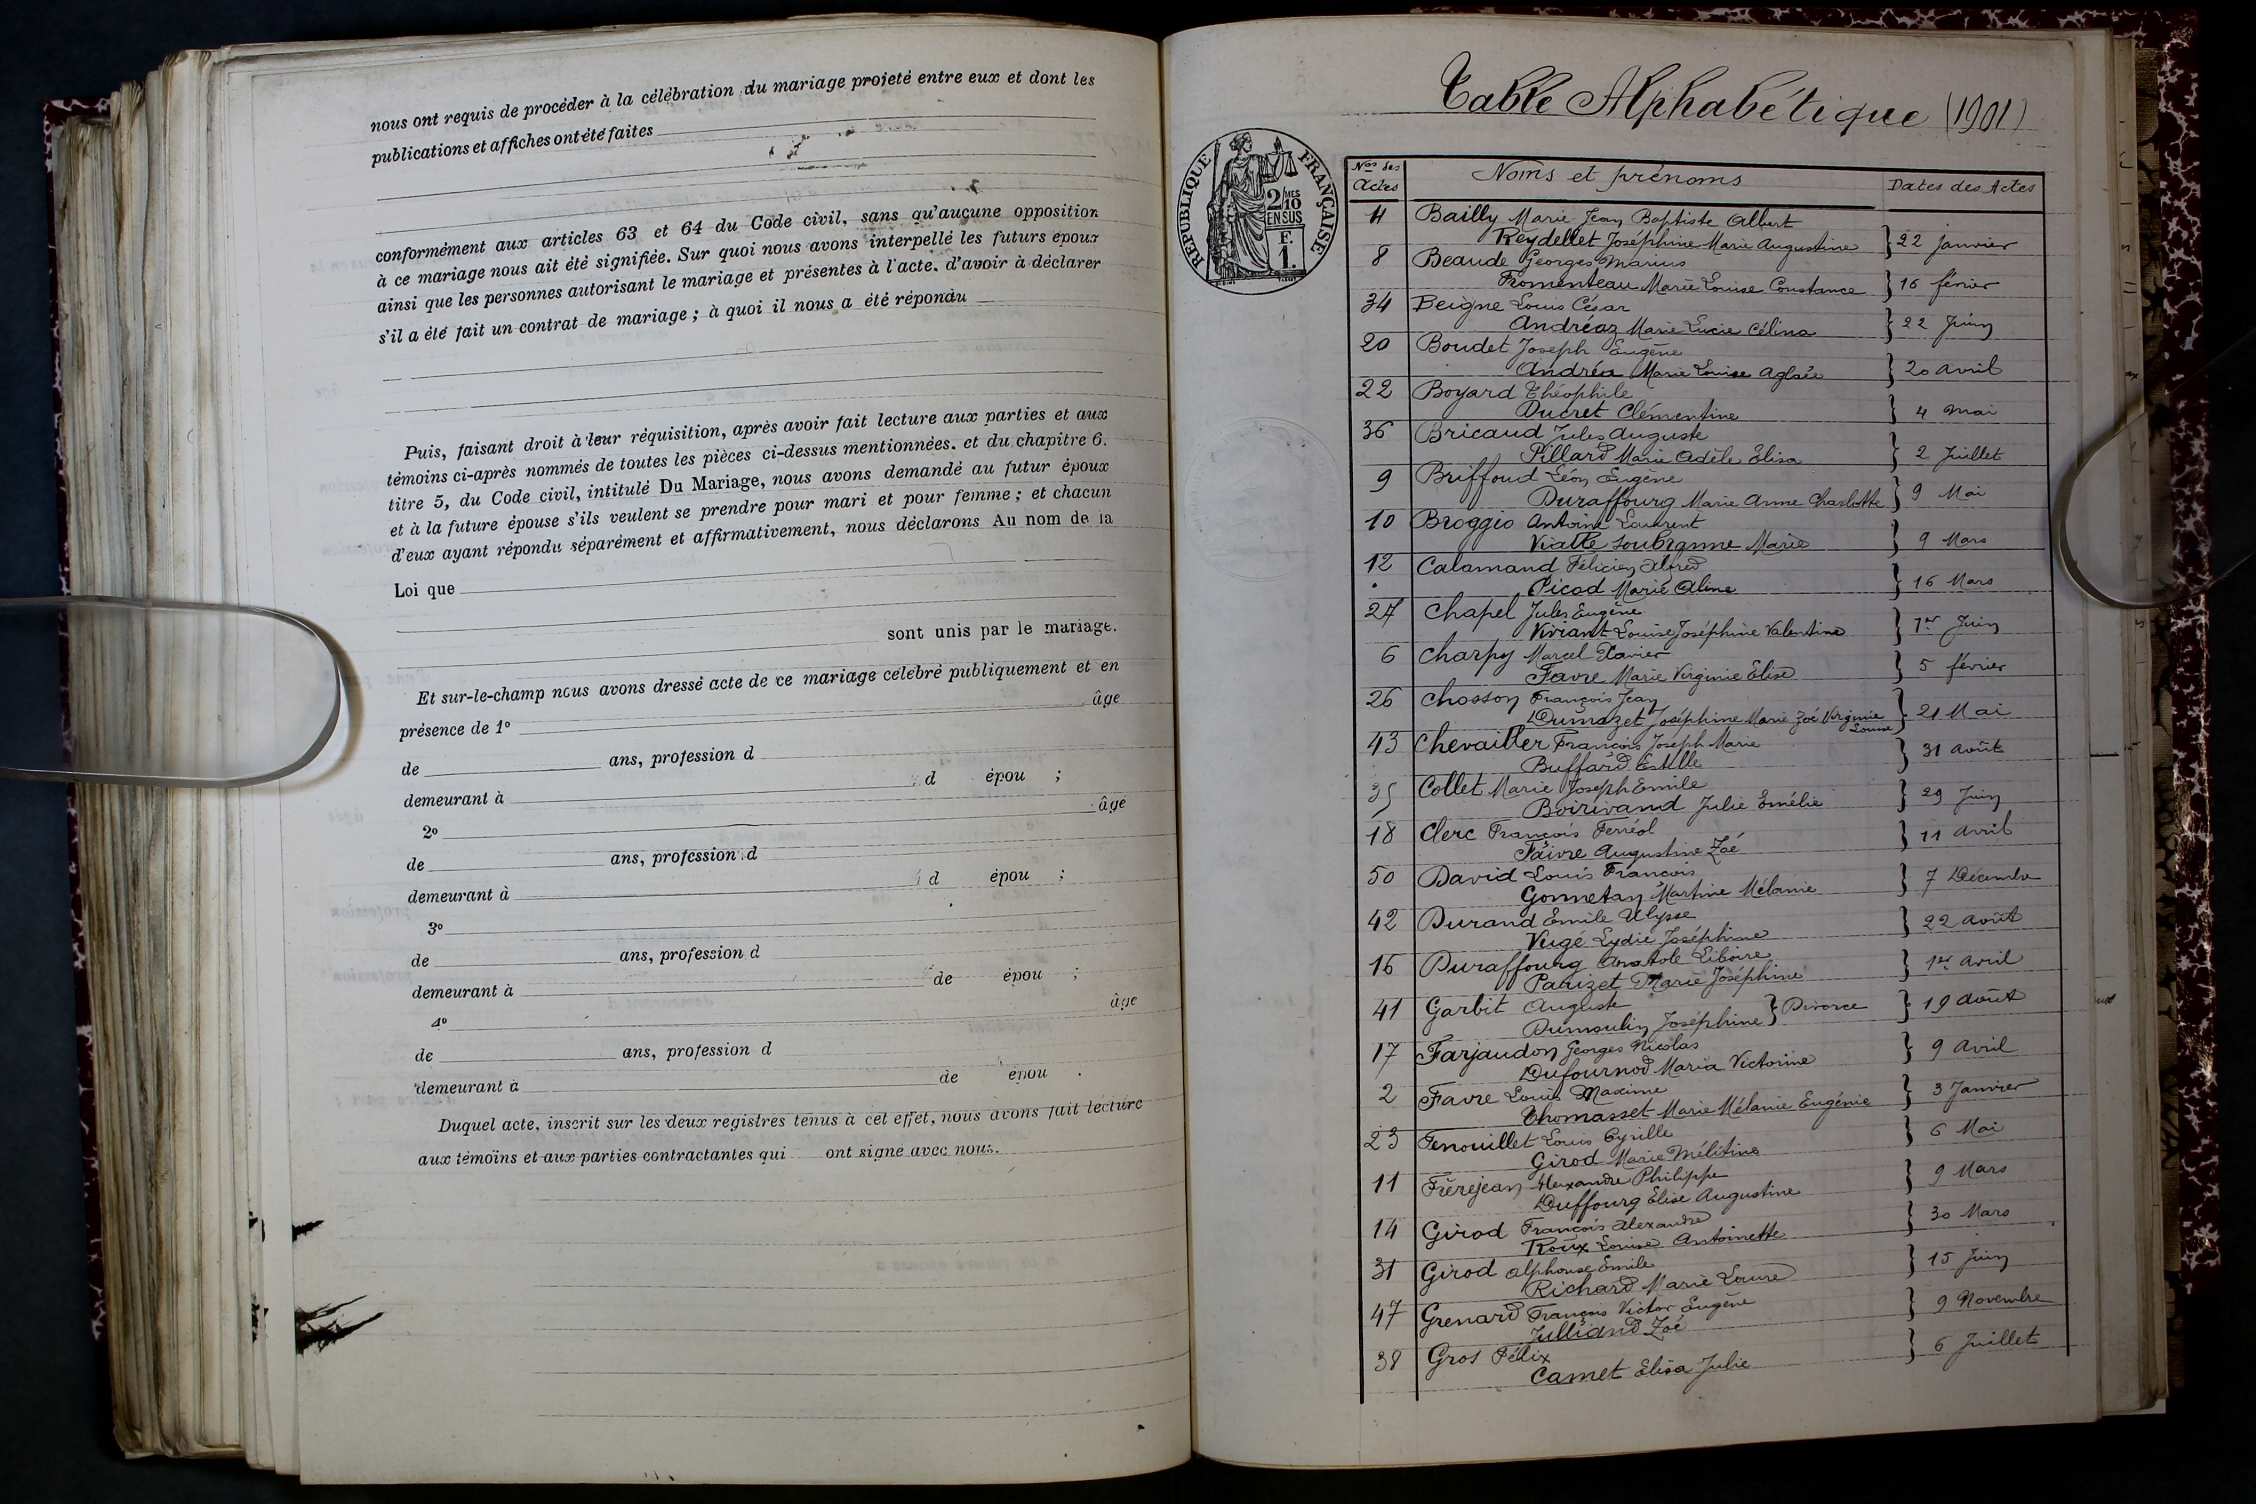 nous ont requis de procéder à la célébration du mariage projeté entre eux et dont les
publications et affiches ont été faites
conformément aux articles 63 et 64 du Code civil, sans qu'aucune opposition
à ce mariage nous ait été signifiée. Sur quoi nous avons interpellé les futurs époux
ainsi que les personnes autorisant le mariage et présentes à l'acte, d'avoir à déclarer
s'il a été fait un contrat de mariage ; à quoi il nous a été répondu
Puis, faisant droit à leur réquisition, après avoir fait lecture aux parties et aux
témoins ci-après nommés de toutes les pièces ci-dessus mentionnées, et du chapitre 6.
titre 5, du Code civil, intitulé Du Mariage, nous avons demandé au futur époux
et à la future épouse s'ils veulent se prendre pour mari et pour femme ; et chacun
d'eux ayant répondu séparément et affirmativement, nous déclarons Au nom de la
Loi que
sont unis par le mariage.
Et sur-le-champ nous avons dressé acte de ce mariage célébré publiquement et en
présence de 1° âgé
de ans, profession d
demeurant à d épou ;
2° âgé
de ans, profession d
demeurant à d épou ;
3°
de ans, profession d
demeurant à de épou ;
4° âge
de ans, profession d
demeurant à de épou .
Duquel acte, inscrit sur les deux registres tenus à cet effet, nous avons fait lecture
aux témoins et aux parties contractantes qui ont signé avec nous.
Table Alphabétique (1901)
RÉPUBLIQUE FRANÇAISE
2/10 MES
EN SUS
F.
1.
Nos des Actes Noms et prénoms Dates des Actes
4 Bailly Marie Jean Baptiste Albert
Reydellet Joséphine Marie Augustine } 22 janvier
8 Beaude Georges Marius
Fromenteau Marie Louise Constance } 16 février
34 Beigne Louis César
Andréaz Marie Lucie Célina } 22 Juin
20 Boudet Joseph Eugène
Andréa Marie Louise Aglaée } 20 avril
22 Boyard Théophile
Ducret Clémentine } 4 mai
36 Bricaud Jules Auguste
Pillard Marie Adèle Elisa } 2 Juillet
9 Briffoud Léon Eugène
Duraffourg Marie Anne Charlotte } 9 Mai
10 Broggio Antoine Laurent
Vialle Soubranne Marie } 9 Mars
12 Calamand Félicien Alfred
Picod Marie Aline } 16 Mars
27 Chapel Jules Eugène
Viviant Louise Joséphine Valentine } 1er Juin
6 Charpy Marcel Xavier
Favre Marie Virginie Elise } 5 février
26 Chosson François Jean
Dumazet Joséphine Marie Zoé Virginie Louise } 21 Mai
43 Chevailler François Joseph Marie
Buffard Estelle } 31 août
35 Collet Marie Joseph Emile
Boirivand Julie Emélie } 29 Juin
18 Clerc François Ferréol
Faivre Augustine Zoé } 11 avril
50 David Louis François
Gonnetan Martine Mélanie } 7 Décembre
42 Durand Emile Ulysse
Vugé Lydie Joséphine } 22 août
16 Duraffourg Anatole Liboire
Parizet Marie Joséphine } 1er avril
41 Garbit Auguste
Dumoulin Joséphine } Divorce } 19 août
17 Farjaudon Georges Nicolas
Dufournod Maria Victorine } 9 avril
2 Favre Louis Maxime
Thomasset Marie Mélanie Eugénie } 3 Janvier
23 Fenouillet Louis Cyrille
Girod Marie Mélitine } 6 Mai
11 Frèrejean Alexandre Philippe
Duffourg Elise Augustine } 9 Mars
14 Girod François Alexandre
Roux Louise Antoinette } 30 Mars
31 Girod Alphonse Emile
Richard Marie Louise } 15 Juin
47 Grenard François Victor Eugène
Julliand Zoé } 9 Novembre
38 Gros Félix
Camet Elisa Julie } 6 Juillet